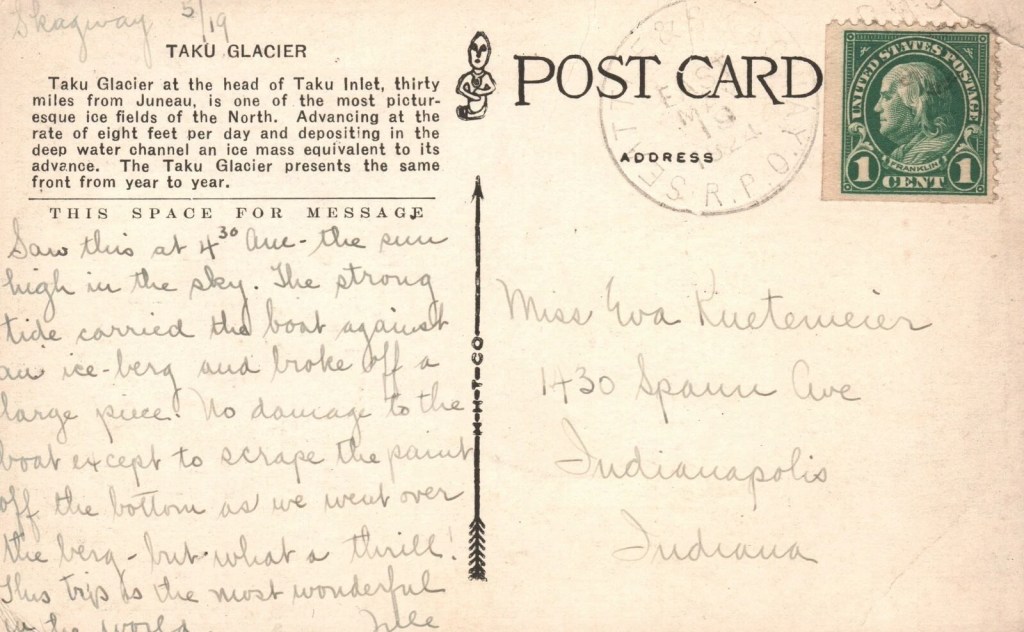 Skagway 5/19
TAKU GLACIER
Taku Glacier at the head of Taku Inlet, thirty
miles from Juneau, is one of the most pictur-
esque ice fields of the North. Advancing at the
rate of eight feet per day and depositing in the
deep water channel an ice mass equivalent to its
advance. The Taku Glacier presents the same
front from year to year.
THIS SPACE FOR MESSAGE
Saw this at 4³⁰ AM - the sun
high in the sky. The strong
tide carried the boat against
an ice-berg and broke off a
large piece. No damage to the
boat except to scrape the paint
off the bottom as we went over
the berg - but what a thrill!
This trip is the most wonderful
in the world.
H-H-T-CO.
POST CARD
ADDRESS
MAY
19
R.P.O.
UNITED STATES POSTAGE
FRANKLIN
1 CENT 1
Miss Eva Kuetemeier
1430 Spann Ave
Indianapolis
Indiana